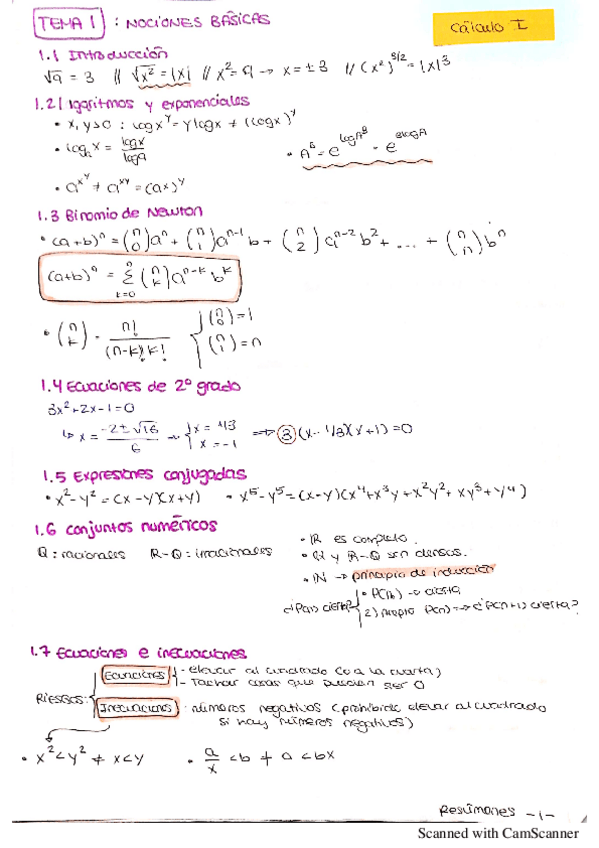 TEMA 1 : NOCIONES BÁSICAS
Cálculo I
1.1 Introducción
√9 = 3 // √x² = |x| // x² = 9 → x = ±3 // (x²)^3/2 = |x|³
1.2 Logaritmos y exponenciales
• x, y > 0 : log x^y = y log x ≠ (log x)^y
• logₐ x = log x / log a
• A^B = e^log A^B = e^B log A
• a^x^y ≠ a^xy = (a^x)^y
1.3 Binomio de Newton
• (a+b)^n = (n 0) a^n + (n 1) a^n-1 b + (n 2) a^n-2 b² + ... + (n n) b^n
(a+b)^n = Σ k=0 n (n k) a^n-k b^k
• (n k) = n! / (n-k)! k! { (n 0) = 1
(n 1) = n
1.4 Ecuaciones de 2º grado
3x² + 2x - 1 = 0
↳ x = -2 ± √16 / 6 → { x = 1/3
x = -1
⇒ 3 (x - 1/3)(x + 1) = 0
1.5 Expresiones conjugadas
• x² - y² = (x - y)(x + y) • x⁵ - y⁵ = (x - y)(x⁴ + x³y + x²y² + xy³ + y⁴)
1.6 Conjuntos numéricos
Q : racionales R - Q : irracionales
• R es completo.
• Q y R - Q son densos.
• N → principio de inducción
¿P(n) cierta? { • P(1) → cierta
2) Acepto P(n) ⇒ ¿P(n+1) cierta?
1.7 Ecuaciones e inecuaciones
Riesgos: { Ecuaciones { - Elevar al cuadrado (o a la cuarta)
- Tachar cosas que puedan ser 0
Inecuaciones : números negativos (prohibido elevar al cuadrado
si hay números negativos)
• x² < y² ≠ x < y • a/x < b ≠ a < bx
Resúmenes -1-
Scanned with CamScanner